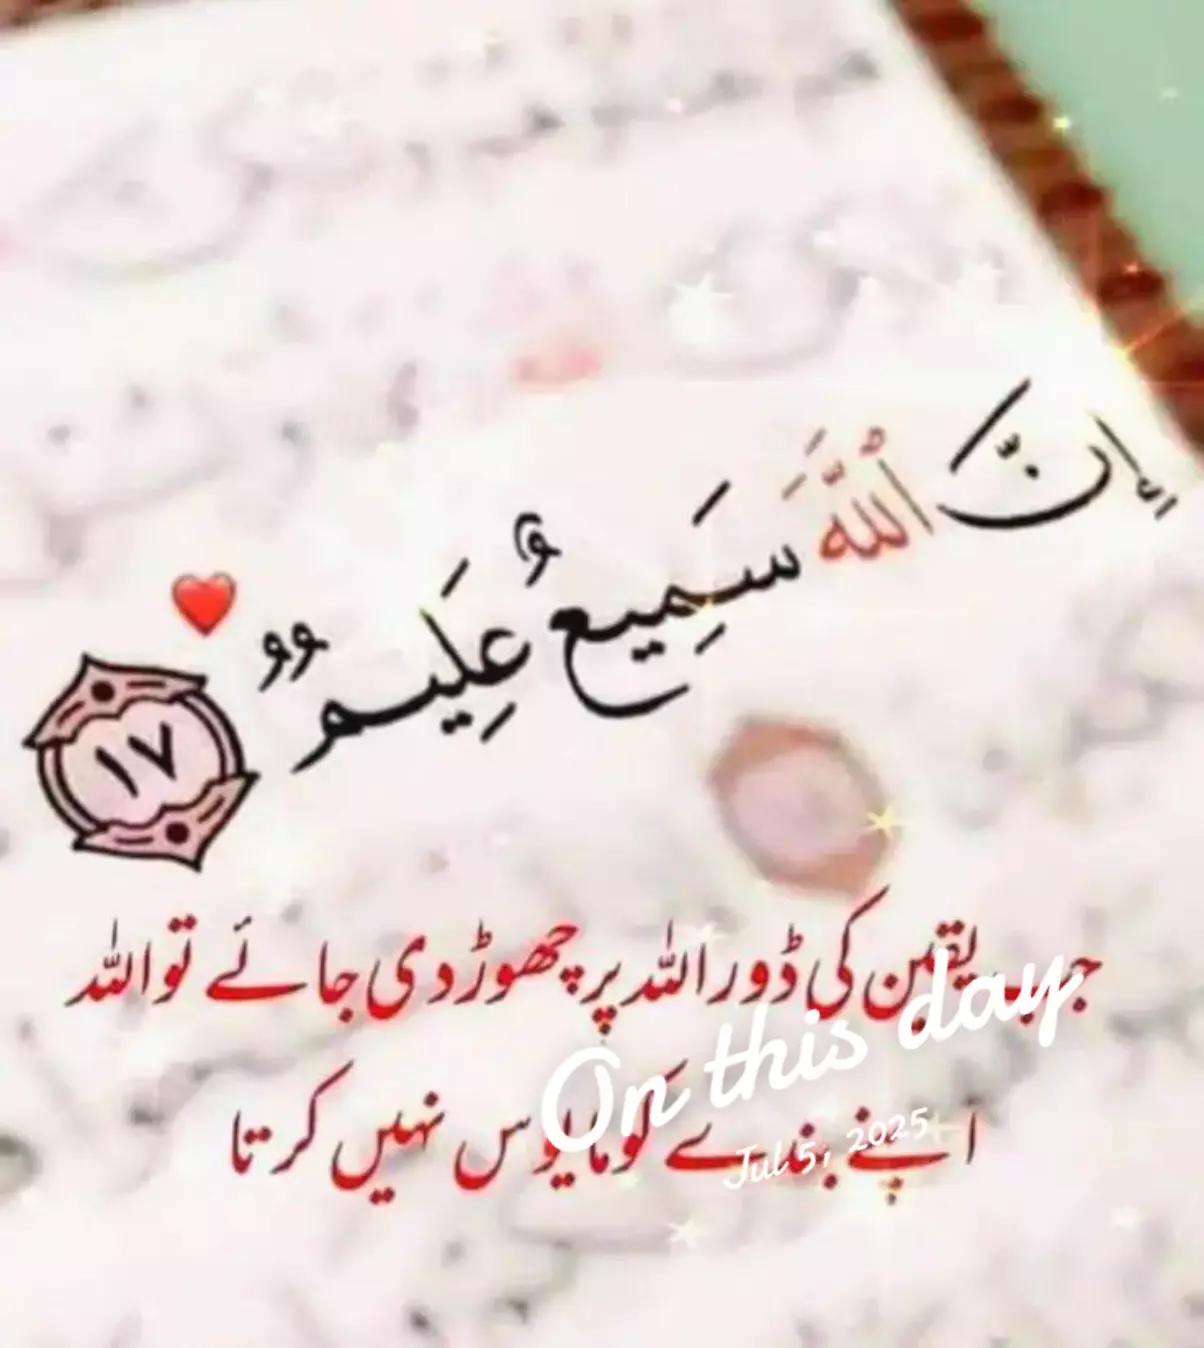 إِنَّ ٱللَّهَ سَمِيعٌ عَلِيمٌ
١٧
جب یقین کی ڈور اللہ پر چھوڑ دی جائے تو اللہ
اپنے بندے کو مایوس نہیں کرتا
On this day
Jul 5, 2025